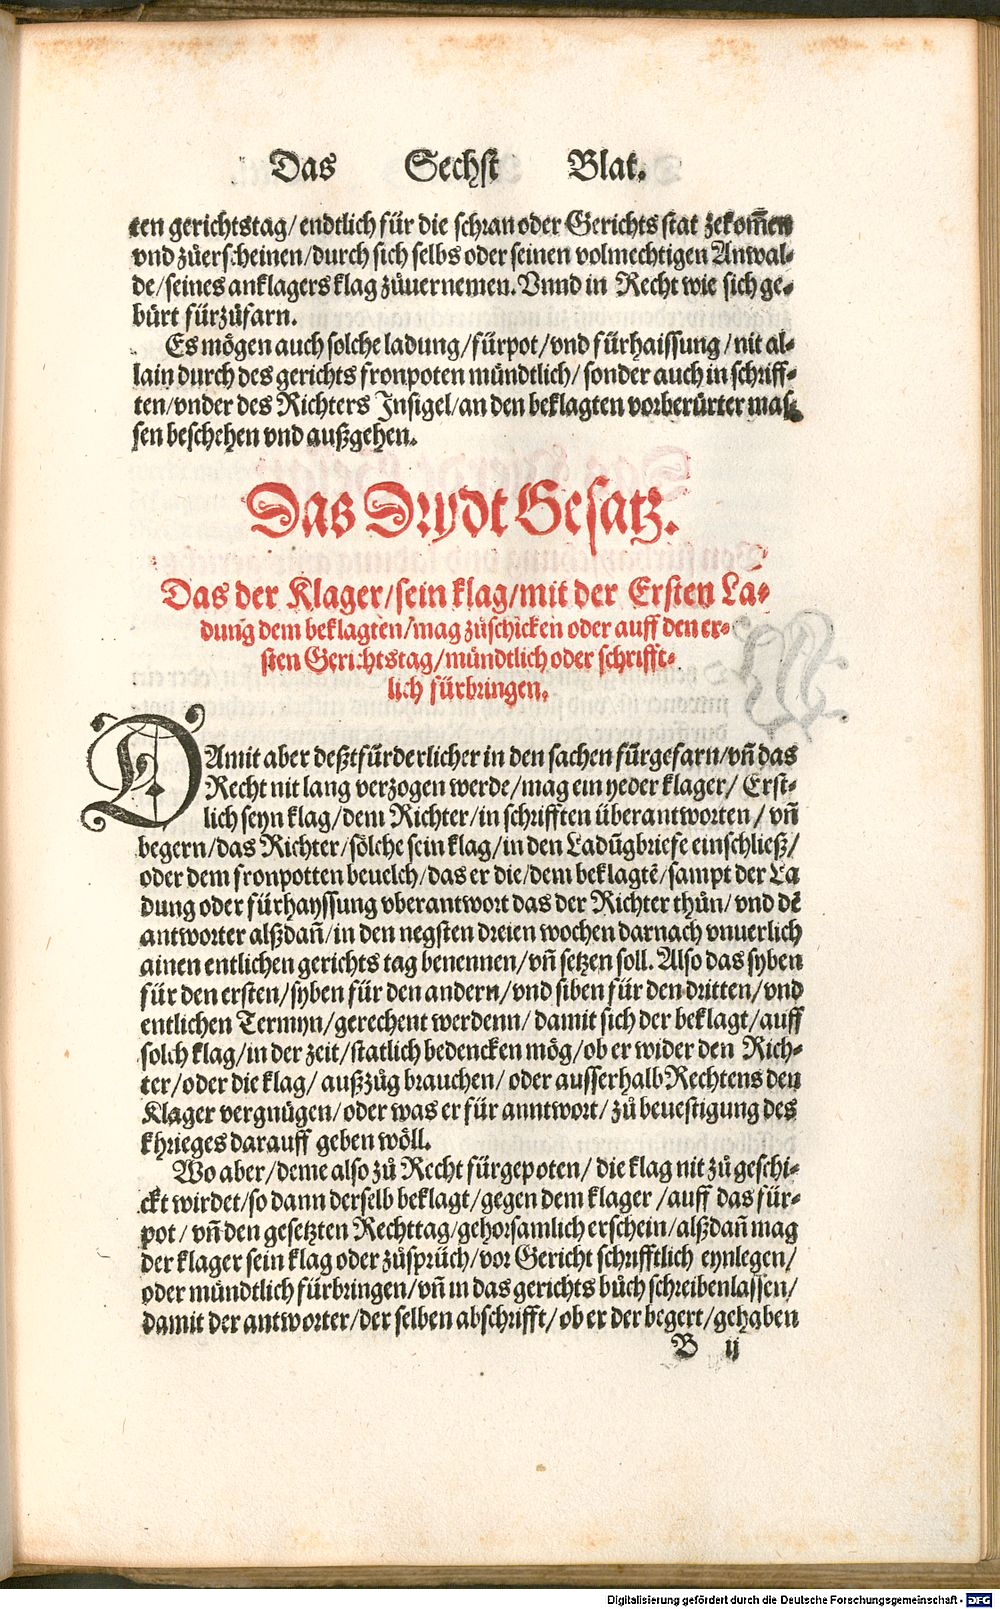 Das Sechst Blat.
ten gerichtstag/ endtlich für die schran oder Gerichts stat zekom̄en
vnd zůerscheinen/ durch sich selbs oder seinen volmechtigen Anwal⸗
de/ seines anklagers klag zůuernemen. Vnnd in Recht wie sich ge⸗
bürt fürzůfarn.
Es mögen auch solche ladung/ fürpot/ vnd fürhaissung/ nit al⸗
lain durch des gerichts fronpoten mündtlich/ sonder auch in schriff⸗
ten/ vnder des Richters Insigel/ an den beklagten vorberürter mas⸗
sen beschehen vnd außgehen.
Das Drydt Gesatz.
Das der Klager/ sein klag/ mit der Ersten La⸗
dung dem beklagten/ mag zůschicken oder auff den er⸗
sten Gerichtstag/ mündtlich oder schrifft⸗
lich fürbringen.
DAmit aber deßtfürderlicher in den sachen fürgefarn/ vn̄ das
Recht nit lang verzogen werde/ mag ein yeder klager/ Erst⸗
lich seyn klag/ dem Richter/ in schrifften überantworten/ vn̄
begern/ das Richter/ sölche sein klag/ in den Ladūgbriefe einschließ/
oder dem fronpotten beuelch/ das er die/ dem beklagtē/ sampt der La
dung oder fürhayssung vberantwort das der Richter thůn/ vnd dē
antworter alßdan̄/ in den negsten dreien wochen darnach vnuerlich
ainen entlichen gerichts tag benennen/ vn̄ setzen soll. Also das syben
für den ersten/ syben für den andern/ vnd siben für den dritten/ vnd
entlichen Termyn/ gerechent werdenn/ damit sich der beklagt/ auff
solch klag/ in der zeit/ statlich bedencken mög/ ob er wider den Rich⸗
ter/ oder die klag/ außzůg brauchen/ oder ausserhalb Rechtens den
Klager vergnügen/ oder was er für anntwort/ zů beuestigung des
khrieges darauff geben wöll.
Wo aber/ deme also zů Recht fürgepoten/ die klag nit zů geschi⸗
ckt wirdet/ so dann derselb beklagt/ gegen dem klager/ auff das für⸗
pot/ vn̄ den gesetzten Rechttag/ gehorsamlich erschein/ alßdan̄ mag
der klager sein klag oder zůsprüch/ vor Gericht schrifftlich eynlegen/
oder mündtlich fürbringen/ vn̄ in das gerichts bůch schreiben lassen/
damit der antworter/ der selben abschrifft/ ob er der begert/ gehaben
B ij
Digitalisierung gefördert durch die Deutsche Forschungsgemeinschaft - DFG